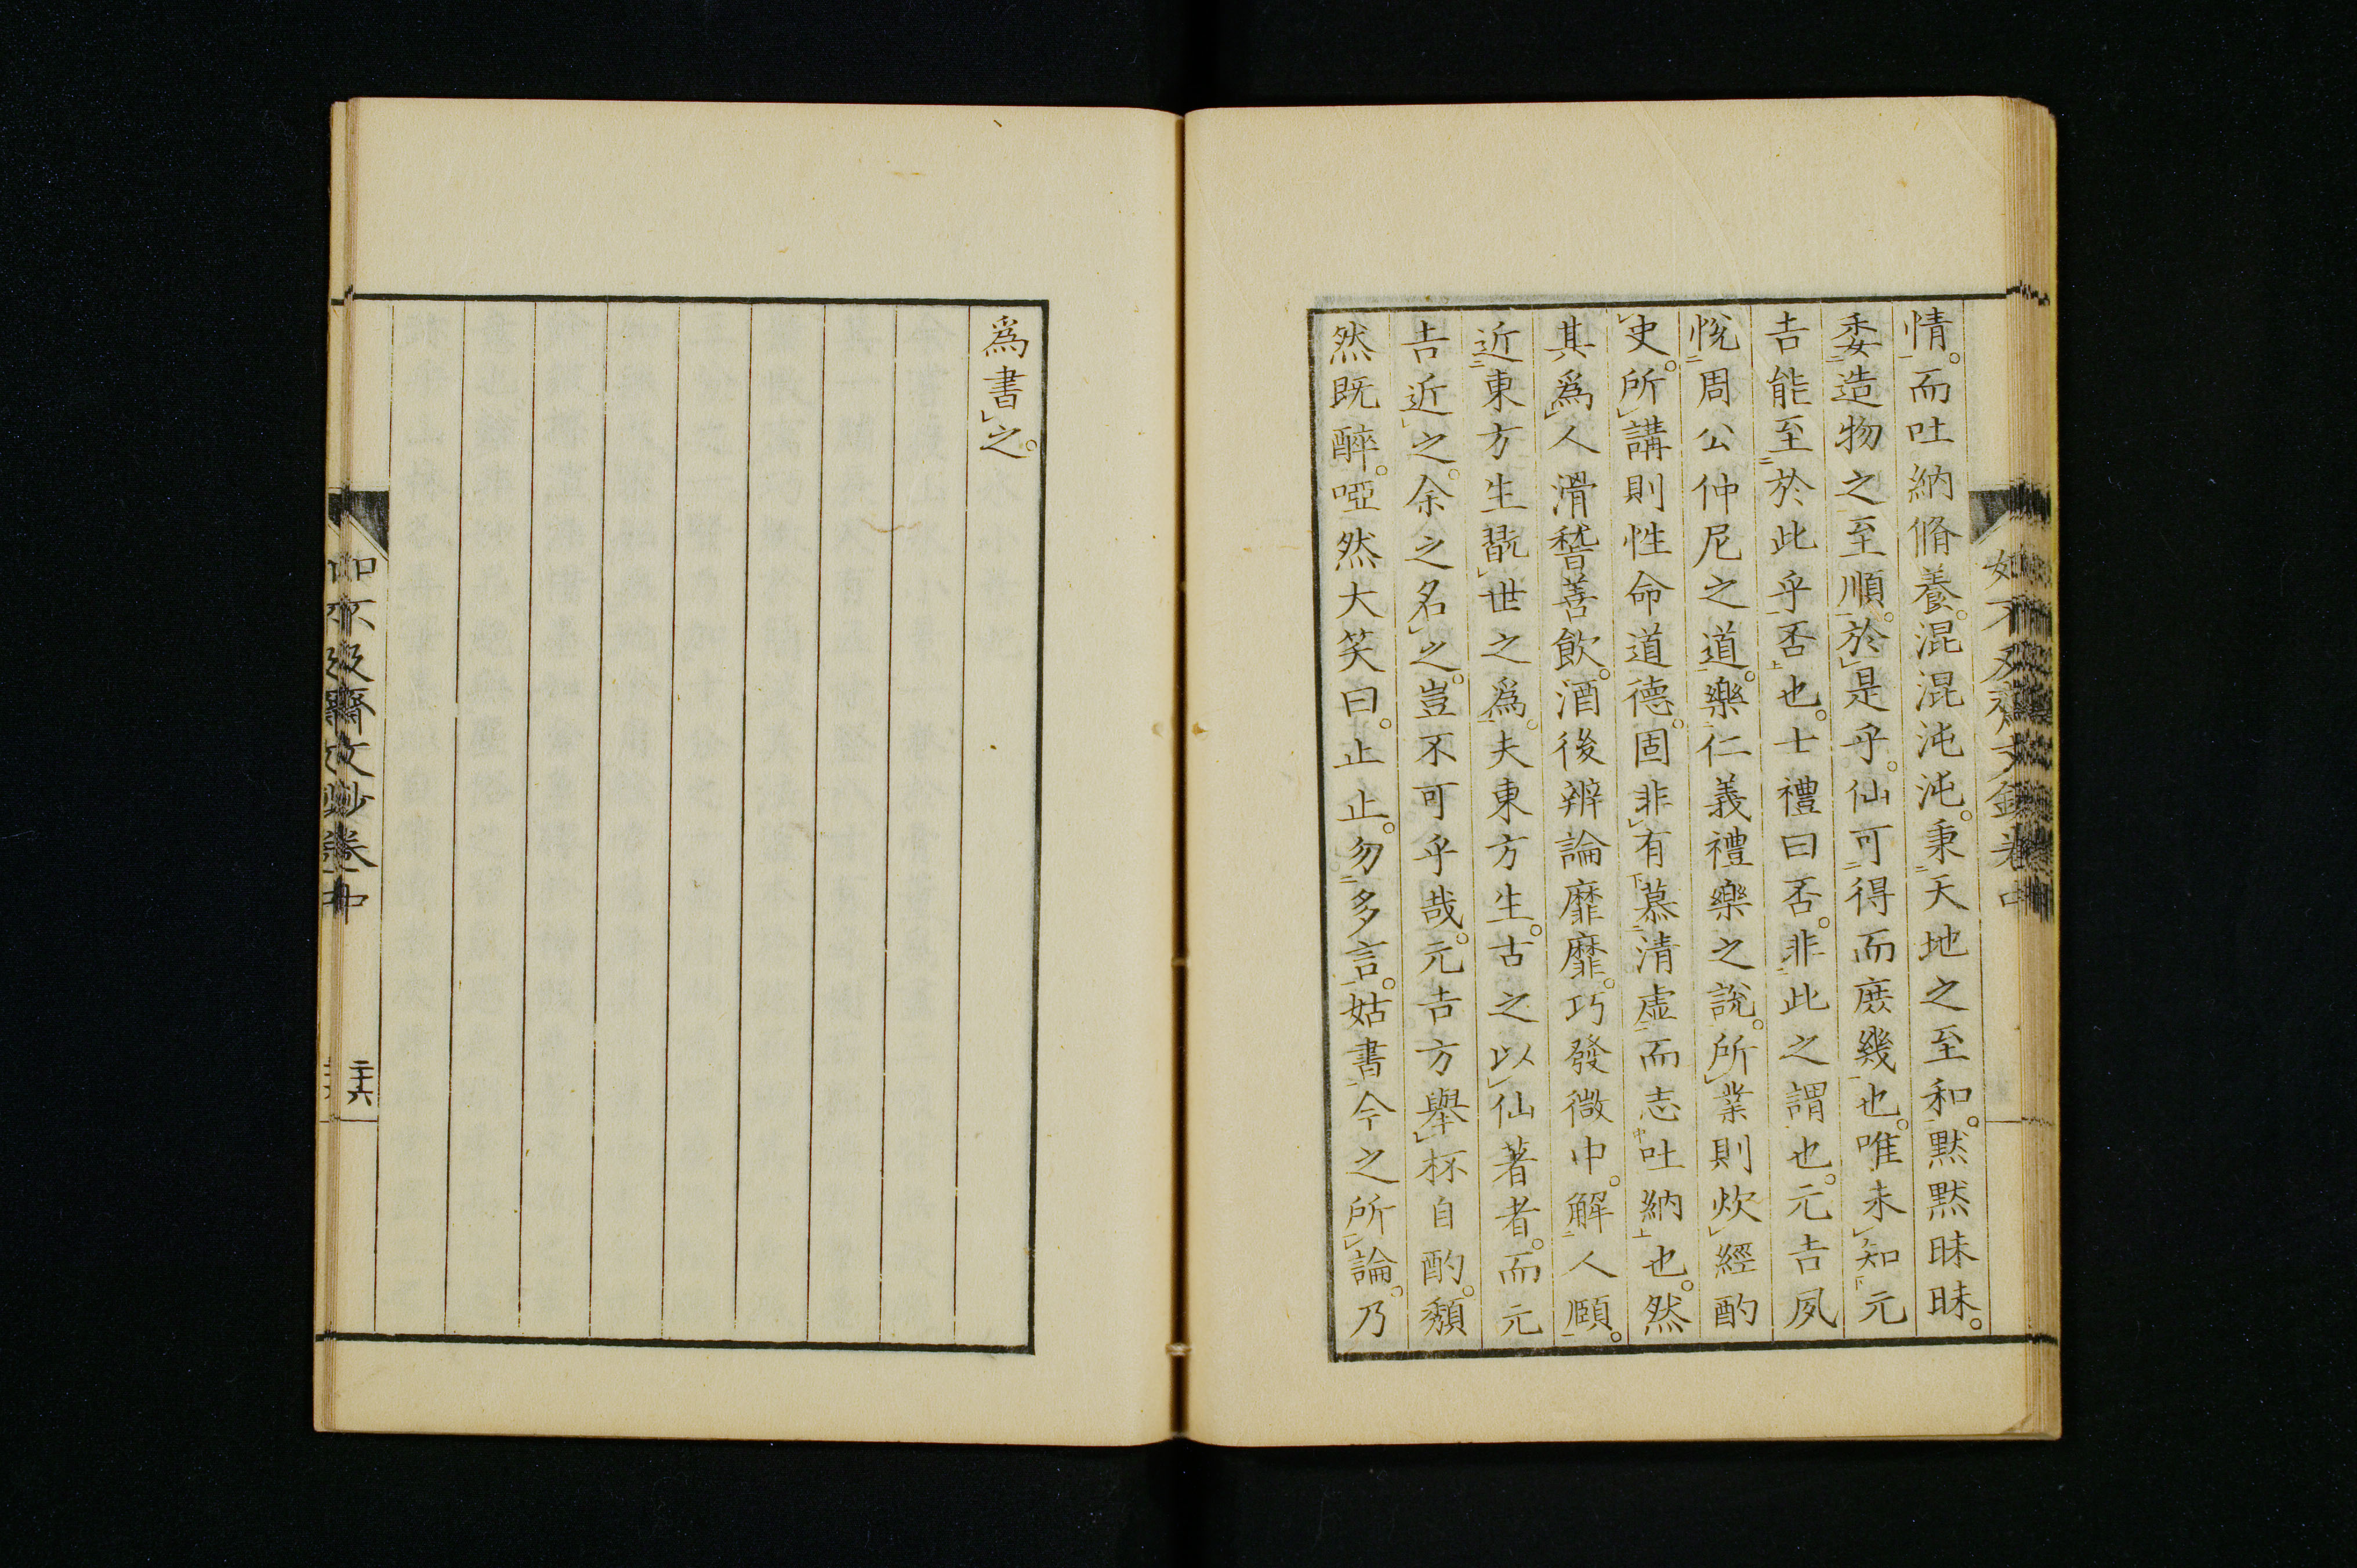 情。而吐納脩養。混混沌沌。秉天地之至和。黙黙昧昧。
委造物之至順。於是乎。仙可得而庶幾也。唯未知元
吉能至於此乎否也。士禮曰否。非此之謂也。元吉夙
悅周公仲尼之道。樂仁義禮樂之說。所業則炊經酌
史。所講則性命道德。固非有慕清虛而志吐納也。然
其爲人滑稽善飲。酒後辨論靡靡。巧發微中。解人頤。
近東方生翫世之爲。夫東方生。古之以仙著者。而元
吉近之。余之名之。豈不可乎哉。元吉方舉杯自酌。頹
然既醉。啞然大笑曰。止止。勿多言。姑書今之所論。乃
爲書之。
如不及齋文鈔卷中
二十六